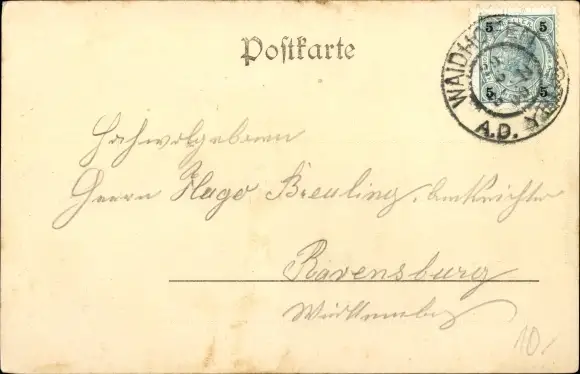 5 5
5 5
WAIDHOFEN
A.D.
Postkarte
Hochwolgeboren
Herrn Hugo Breuling, Amtsrichter
Ravensburg
Württemberg
10,-